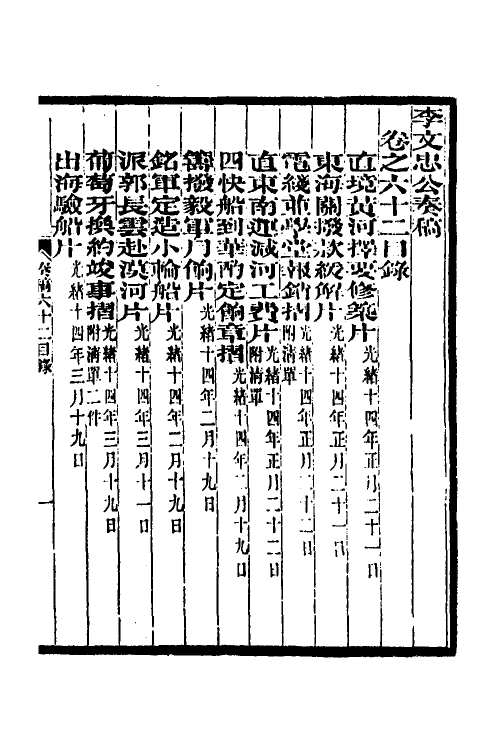 李文忠公奏稿
卷之六十二目錄
直境黃河擇要修築片 光緒十四年正月二十一日
東海關撥款緩解片 光緒十四年正月二十一日
電綫並學堂報銷摺 光緒十四年正月二十二日 附清單
直東南運減河工費片 光緒十四年正月二十二日 附清單
四快船到華酌定餉章摺 光緒十四年二月十九日
籌撥毅軍月餉片 光緒十四年二月十九日
銘軍定造小輪船片 光緒十四年二月十九日
派郭長雲赴漠河片 光緒十四年三月十一日
葡萄牙換約竣事摺 光緒十四年三月十九日 附清單二件
出海驗船片 光緒十四年三月十九日
奏稿六十二目錄
一